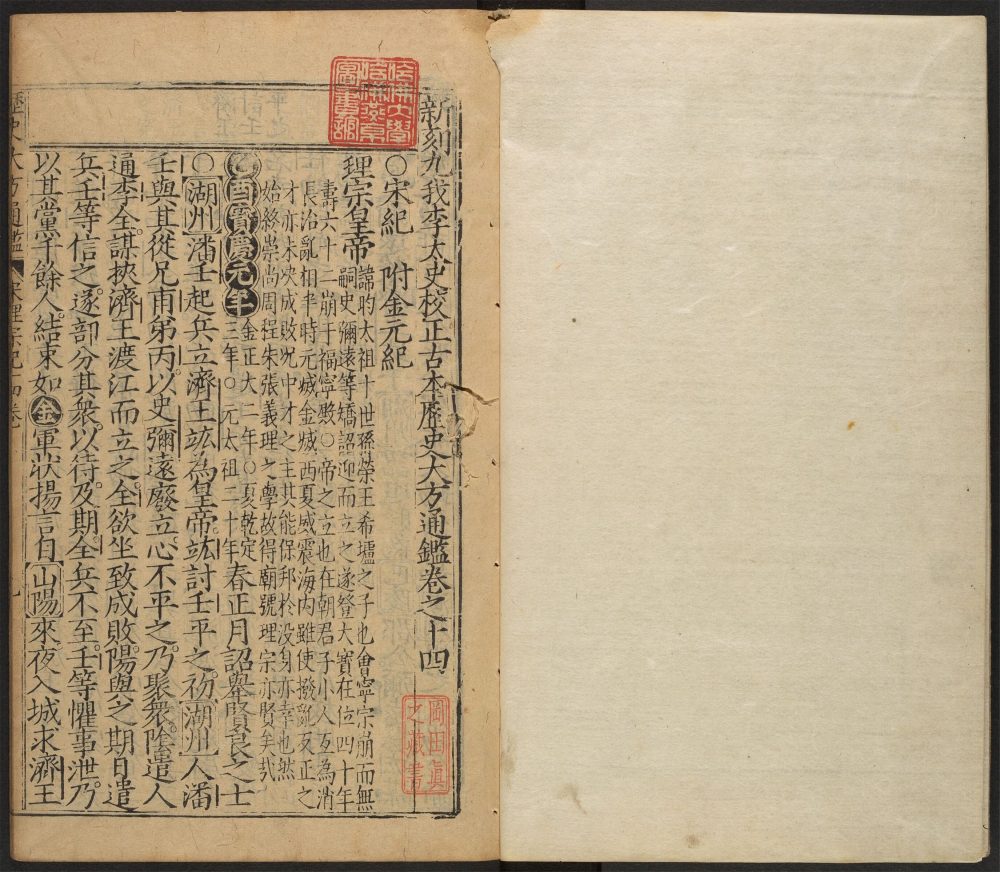 新刻九我李太史校正古本歷史大方通鑑卷之十四
○宋紀 附金元紀
理宗皇帝
諱昀太祖十世孫榮王希壚之子也會寧宗崩而無
嗣史彌遠等矯詔迎而立之遂登大寶在位四十年
壽六十二崩于福寧殿○帝之立也在朝君子小人互為消
長治亂相半時元滅金滅西夏威震海內雖使撥亂反正之
才亦未央成敗况中才之主其能保邦於没身亦幸也然
始終崇尚周程朱張義理之學故得廟號理宗亦賢矣哉
乙酉寳慶元年
金正大二年○夏乾定
三年○元太祖二十年
春正月詔舉賢良之士
○湖州潘壬起兵立濟王竑為皇帝竑討壬平之初湖州人潘
壬與其從兄甫弟丙以史彌遠廢立心不平之乃聚衆陰遣人
通李全謀挾濟王渡江而立之全欲坐致成敗陽與之期日遣
兵壬等信之遂部分其衆以待及期全兵不至壬等懼事泄乃
以其黨千餘人結束如金軍狀揚言自山陽來夜入城求濟王
歷史大方通鑑 宋理宗紀 十四卷 一
哈佛大學哈佛燕京圖書館
岡田眞之藏書